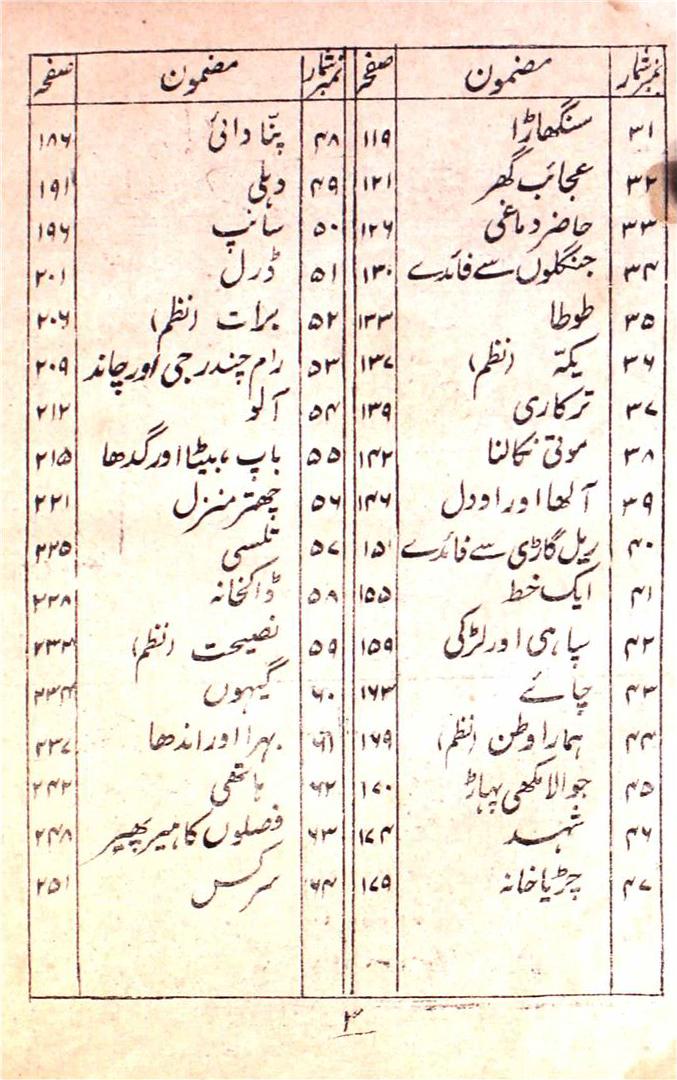 نمبر شمار مضمون صفحہ نمبر شمار مضمون صفحہ
۳۱ سنگھاڑا ۱۱۹ ۴۸ پنّا دائی ۱۸۶
۳۲ عجائب گھر ۱۲۱ ۴۹ دہلی ۱۹۱
۳۳ حاضر دماغی ۱۲۶ ۵۰ سانپ ۱۹۶
۳۴ جنگلوں سے فائدے ۱۳۰ ۵۱ ڈرل ۲۰۱
۳۵ طوطا ۱۳۳ ۵۲ برات (نظم) ۲۰۶
۳۶ یکہّ (نظم) ۱۳۷ ۵۳ رام چندر جی اور چاند ۲۰۹
۳۷ ترکاری ۱۳۹ ۵۴ آلو ۲۱۲
۳۸ موتی نکالنا ۱۴۲ ۵۵ باپ، بیٹا اور گدھا ۲۱۵
۳۹ آلھا اور اودل ۱۴۶ ۵۶ چھتر منزل ۲۲۱
۴۰ ریل گاڑی سے فائدے ۱۵۱ ۵۷ تلسی ۲۲۵
۴۱ ایک خط ۱۵۵ ۵۸ ڈاکخانہ ۲۲۸
۴۲ سپاہی اور لڑکی ۱۵۹ ۵۹ نصیحت (نظم) ۲۳۳
۴۳ چائے ۱۶۳ ۶۰ گیہوں ۲۳۴
۴۴ ہمارا وطن (نظم) ۱۶۹ ۶۱ بہرا اور اندھا ۲۳۷
۴۵ جوالا مکھی پہاڑ ۱۷۰ ۶۲ ہاتھی ۲۴۲
۴۶ شہد ۱۷۴ ۶۳ فصلوں کا ہیر پھیر ۲۴۸
۴۷ چڑیا خانہ ۱۷۹ ۶۴ سرکس ۲۵۱
۳